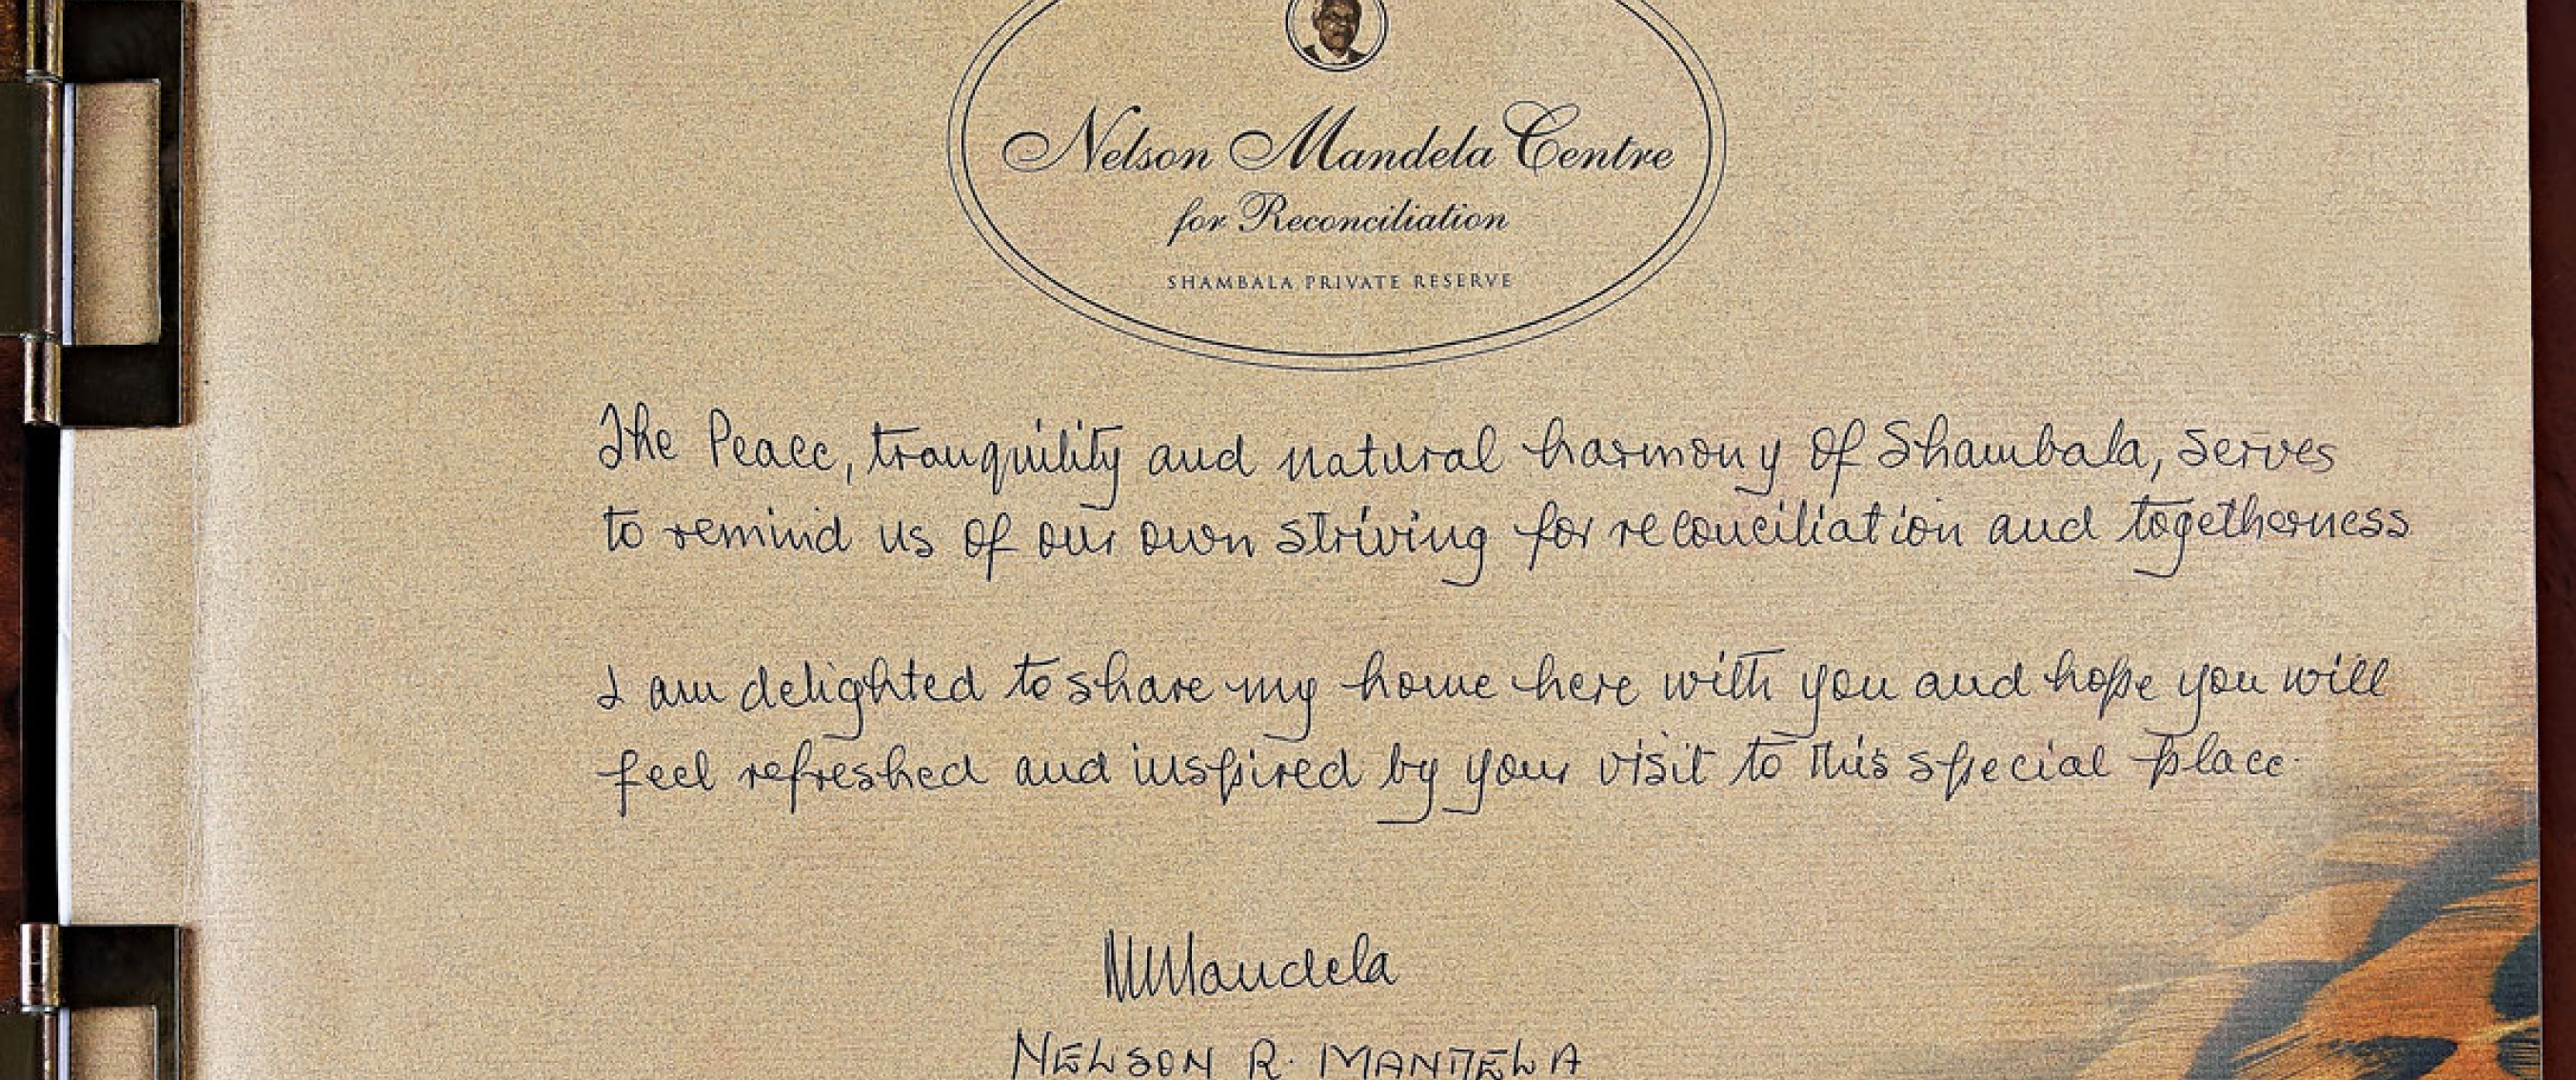 Nelson Mandela Centre
for Reconciliation
SHAMBALA PRIVATE RESERVE
The Peace, tranquility and natural harmony of Shambala, serves
to remind us of our own striving for reconciliation and togetherness
I am delighted to share my home here with you and hope you will
feel refreshed and inspired by your visit to this special place.
NMandela
NELSON R. MANDELA